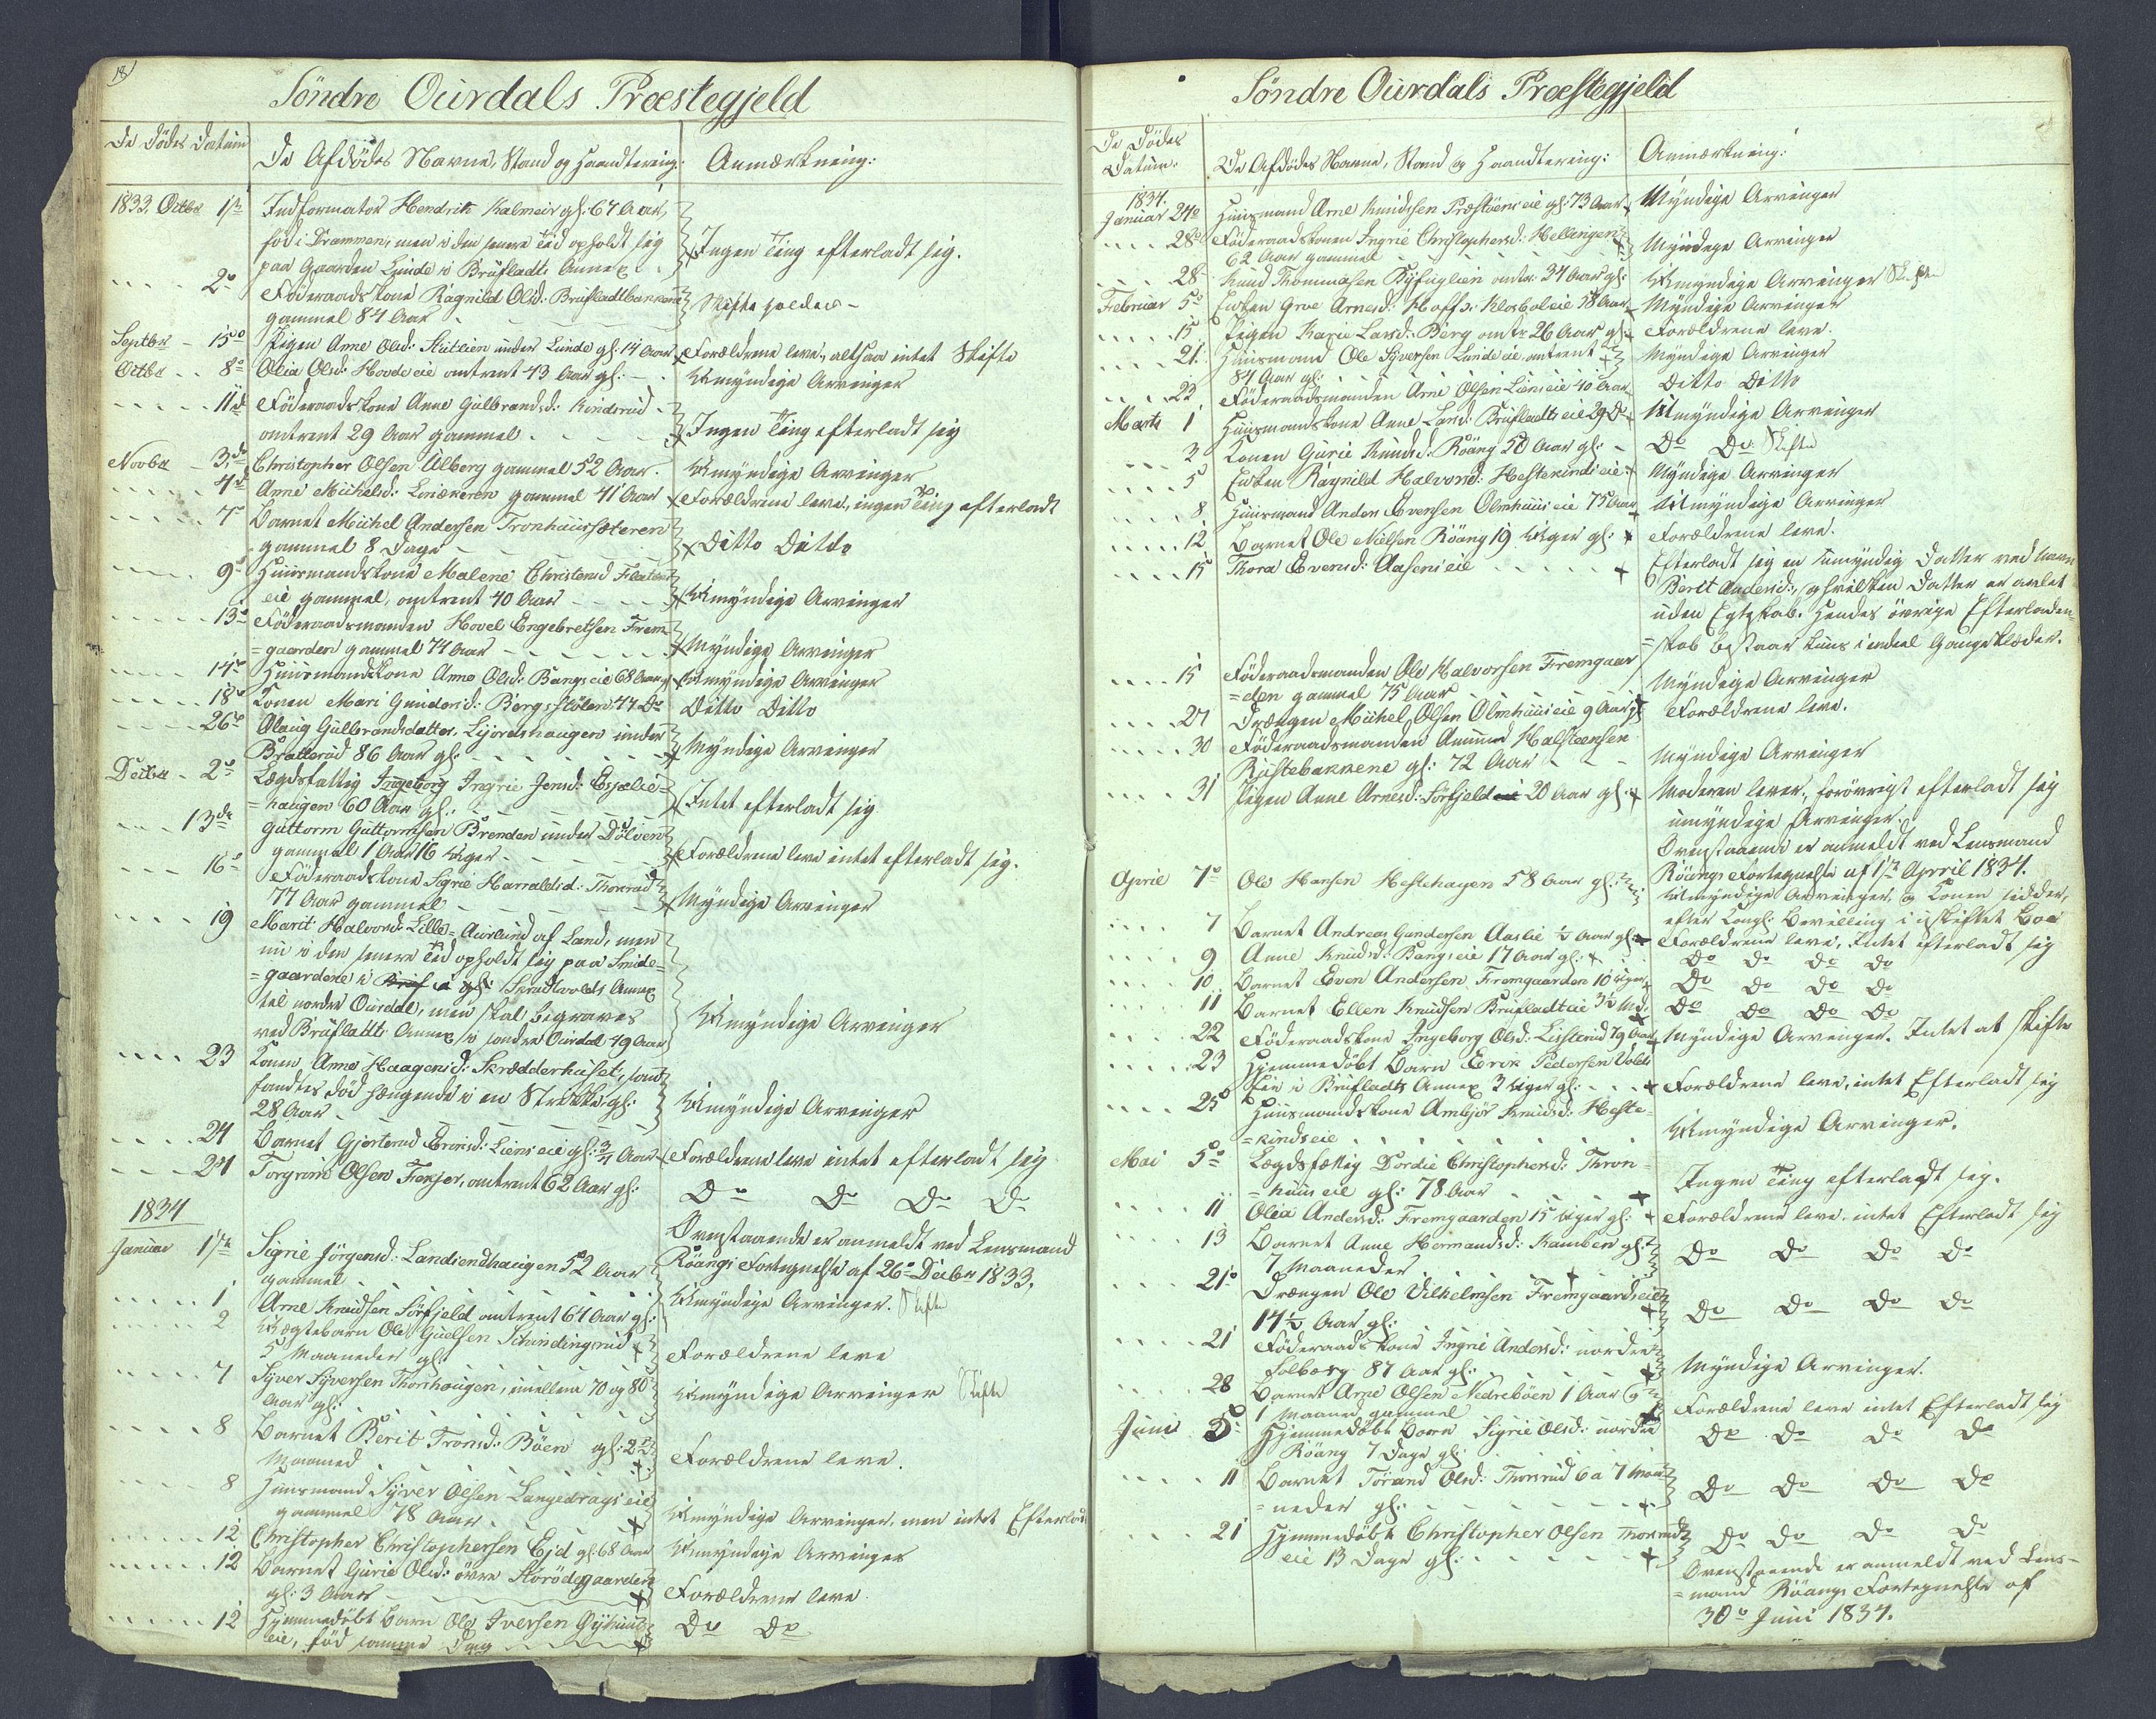 18
Söndre Ourdals Præstegjeld
De Dödes Datum
De Afdödes Navne, Stand og Haandtering:
Anmærkning:
1833. Octbr 1ste
Indformator Hendrik Kalmeir gl: 67 Aar,
föd i Drammen, men i den senere Tid opholdt sig
paa Gaarden Lunde i Brufladts Annex
Ingen Ting efterladt sig.
2den
Föderaadskone Ragnild Olsd: Brufladtbakken
gammel 84 Aar
Skifte holdes
Septbr 15de
Pigen Anne Olsd: Slutlien under Lunde gl: 14 Aar
Forældrene leve, altsaa intet Skifte
Octbr 8de
Olia Olsd: Hovdeeie omtrent 43 Aar gl:
Umyndige Arvinger
11te
Föderaadskone Anne Gulbrandsd: Kindsrud
omtrent 29 Aar gammel
Ingen Ting efterladt sig
Novbr 3die
Christopher Olsen Ulberg gammel 52 Aar.
Umyndige Arvinger
4de
Anne Mikkelsd: gammel 41 Aar
Forældrene leve, ingen Ting efterladt
7
Barnet Mikkel Andersen Tronhuussæteren
gammel 8 Dage
Ditto Ditto
9de
Huusmandskone Malene Christensd
eie gammel, omtrent 40 Aar
Umyndige Arvinger
13de
Föderaadsmanden Hovel Engebretsen Frem=
=gaarden gammel 74 Aar
Myndige Arvinger
14de
Huusmandskone Anne Olsd: Bangseie 68 Aar gl
Umyndige Arvinger
18de
Konen Mari Gundersd: Bergsstölen 44 Do
Ditto Ditto
26de
Olaug Gulbrandsdatter, Ljordshaugen under
Bratterud 86 Aar gl:
Myndige Arvinger
Decbr 2den
Lægdsfattig Ingeborg Ingrie Jensd: Espelie=
=haugen 60 Aar gl:
Intet efterladt sig
13de
Guttorm Guttormsen Brenden under Dölven
gammel 1 Aar 16 Uger
Forældrene leve intet efterladt sig.
16de
Föderaadskone Sigrie Harraldsd: Thonsrud
77 Aar gammel
Myndige Arvinger
19
Marit Halvorsd: Lille=Aurlund af Land, men
nu i den senere Tid opholdt sig paa Smids=
=gaardene i Skrutvolds Annex
til nordre Ourdal, men skal begraves
ved Bruflatts Annex i söndre Ourdal 49 Aar
Umyndige Arvinger
23
Konen Anne Haagensd: Skrædderhuset, som
fandtes död hængende i en Strikke gl:
28 Aar
Umyndige Arvinger
24
Barnet Gjertrud Ericsd: Lienseie gl: 3/4 Aar
Forældrene leve intet efterladt sig
24
Torgrim Olsen Fönjor, omtrent 62 Aar gl:
Do Do Do Do
1834
Ovenstaaende er anmeldt ved Lensmand
Röangs Fortegnelse af 26de Decbr 1833.
Januar 1ste
Sigrie Jörgensd: Landsendhaugen 52 Aar
gammel
1
Arne Knudsen Sörfjeld omtrent 64 Aar gl:
Umyndige Arvinger. Skifte
2
Uægtebarn Ole Guulsen
5 Maaneder gl:
Forældrene leve
7
Syver Syversen Thonhaugen, imellem 70 og 80
Aar gl:
Umyndige Arvinger Skifte
8
Barnet Berit Tronsd: Böen gl: 2
Maaned
Forældrene leve.
8
Huusmand Syver Olsen Langedragseie
gammel 78 Aar
Umyndige Arvinger, men intet Efterladt
12
Christopher Christophersen Ejd gl: 68 Aar
Umyndige Arvinger
12
Barnet Gurie Olsd: övre Storödegaarden
gl: 3 Aar
Forældrene leve.
12
Hjemmedöbt Barn Ole Iversen
eie, föd samme Dag
Do Do
Söndre Ourdals Præstegjeld
De Dödes
Datum:
De Afdödes Navne, Stand og Haandtering:
Anmærkning:
1834.
Januar 24de
Huusmand Arne Knudsen Præstöenseie gl: 73 Aar
Myndige Arvinger
28de
Föderaadskonen Ingrie Christophersd: Hellingen
62 Aar gammel
Myndige Arvinger
28
Knud Thommasen omtr: 34 Aar gl:
Umyndige Arvinger Skifte
Februar 5te
Enken Groe Arnesd: Kloboleie 78 Aar
Myndige Arvinger
15
Pigen Karie Larsd: Berg omtr: 26 Aar gl:
Forældrene leve.
21
Huusmand Ole Syversen Lundeeie omtrent
84 Aar gl:
Myndige Arvinger
22
Föderaadsmanden Arne Olsen Lienseie 40 Aar
Ditto Ditto
Marts 1
Huusmandskone Anne Larsd: Bruflatseie 29 Do
Umyndige Arvinger
3
Konen Gurie Knudsd: Röang 50 Aar gl:
Do Do Skifte
5
Enken Ragnild Halvorsd: Hestekindseie
Myndige Arvinger
8
Huusmand Anders Evensen Olmhuuseie 75 Aar
Umyndige Arvinger
12
Barnet Ole Nielsen Röang 19 Uger gl:
Forældrene leve.
15
Thora Evensd: Aasenseie
Efterladt sig en umyndig Datter ved Navn
Berit Andersd:, hvilken Datter er avlet
uden Egteskab. Hendes övrige Efterladen=
=skab bestaar kuns i endeel Gangklæder.
15
Föderaadsmanden Ole Halvorsen Fremgaar=
=den gammel 75 Aar
Myndige Arvinger
27
Drængen Mikkel Olsen Olmhuuseie 9 Aar gl
Forældrene leve.
30
Föderaadsmanden Amund Halsteensen
Rustebakkene gl: 72 Aar
Myndige Arvinger
31
Pigen Anne Arnesd: Sörfjeld eie 20 Aar gl:
Moderen lever, forövrigt efterladt sig
umyndige Arvinger.
Ovenstaaende er anmeldt ved Lensmand
Röangs Fortegnelse af 1ste April 1834.
Aprie 7de
Ole Hansen Hestehagen 58 Aar gl:
Umyndige Arvinger, og Konen sidder,
efter Kongl: Bevilling i uskiftet Boe
7
Barnet Andreas Gundersen Aaslie 1/2 Aar gl
Forældrene leve. Intet efterladt sig
9
Anne Knudsd: Bangseie 17 Aar gl:
Do Do Do Do
10
Barnet Even Andersen Fremgaarden 10 Uger
Do Do Do Do
11
Barnet Ellen Knudsen Brufladteie 3½ Md.
Do Do Do Do
22
Föderaadskone Ingeborg Olsd: Liesterud 79 Aar
Myndige Arvinger. Intet at skifte
23
Hjemmedöbt Barn Erik Pedersen Volds
i Bruflads Annex 3 Uger gl:
Forældrene leve, intet Efterladt sig
25
Huusmandskone Ambjör Knudsd: Heste=
=kindseie
Umyndige Arvinger.
Mai 5te
Lægdsfattig Dordie Christophersd: Thron=
=huuseie gl: 78 Aar
Ingen Ting efterladt sig.
11
Olea Andersd: Fremgaarden 15 Uger gl:
Forældrene leve. intet Efterladt sig
13
Barnet Anne Hermandsd: Kamben gl:
7 Maaneder
Do Do Do Do
21de
Drængen Ole Vilhelmsen Fremgaardseie
14½ Aar gl:
Do Do Do Do
21
Föderaadskone Ingrie Andersd: nordre
Solberg 87 Aar gl:
Myndige Arvinger.
28
Barnet Arne Olsen Nedreböen 1 Aar og
1 Maaned gammel
Forældrene leve intet Efterladt sig
Juni 5
Hjemmedöbt Barn Sigrie Olsd: nordre
Röang 7 Dage gl:
Do Do Do Do
11
Barnet Torand Olsd: Thonsrud 6 a 7 Maa=
=neder gl:
Do Do Do Do
21
Hjemmedöbt Christopher Olsen Thonsrud
eie 13 Dage gl:
Do Do Do Do
Ovenstaaende er anmeldt ved Lens=
=mand Röangs Fortegnelse af
30de Juni 1834.